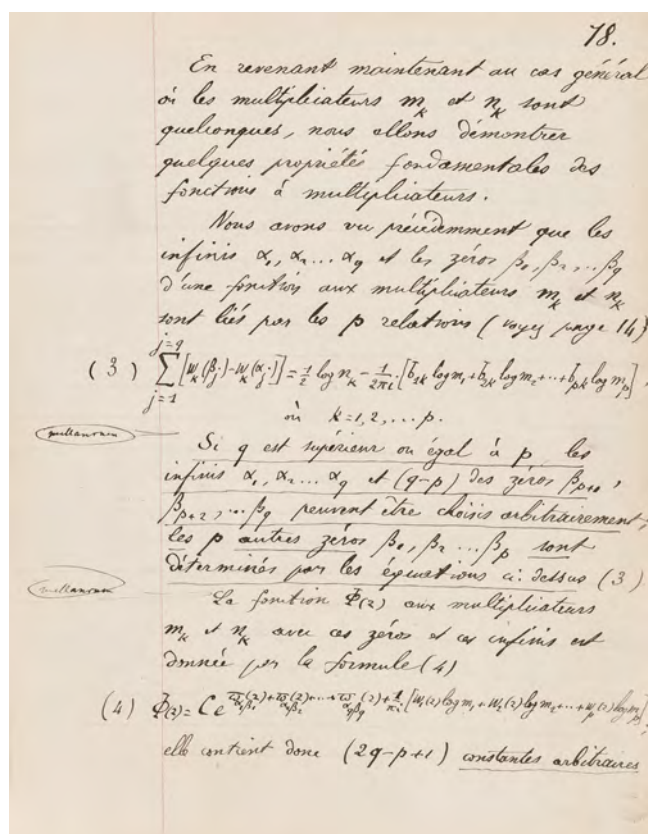 78.
En revenant maintenant au cas général
où les multiplicateurs m_k et n_k sont
quelconques, nous allons démontrer
quelques propriétés fondamentales des
fonctions à multiplicateurs.
Nous avons vu précédemment que les
infinis α₁, α₂... α_q et les zéros β₁, β₂, ... β_q
d'une fonction aux multiplicateurs m_k et n_k
sont liés par les p relations (voyez page 14)
(3) \sum_{j=1}^{j=q} [w_k(β_j) - w_k(α_j)] = 1/2 log n_k - 1/2πi [b_{1k} log m_1 + b_{2k} log m_2 + ... + b_{pk} log m_p],
où k = 1, 2, ... p.
mellanrum
Si q est supérieur ou égal à p les
infinis α₁, α₂... α_q et (q-p) des zéros β_{p+1},
β_{p+2}, ... β_q peuvent être choisis arbitrairement;
les p autres zéros β₁, β₂ ... β_p sont
déterminés par les équations ci-dessus (3)
mellanrum
La fonction Φ(z) aux multiplicateurs
m_k et n_k avec ces zéros et ces infinis est
donnée par la formule (4)
(4) Φ(z) = C e^{ϖ_{α₁β₁}(z) + ϖ_{α₂β₂}(z) + ... + ϖ_{α_qβ_q}(z) + 1/πi [w_1(z) log m_1 + w_2(z) log m_2 + ... + w_p(z) log m_p]};
elle contient donc (2q-p+1) constantes arbitraires